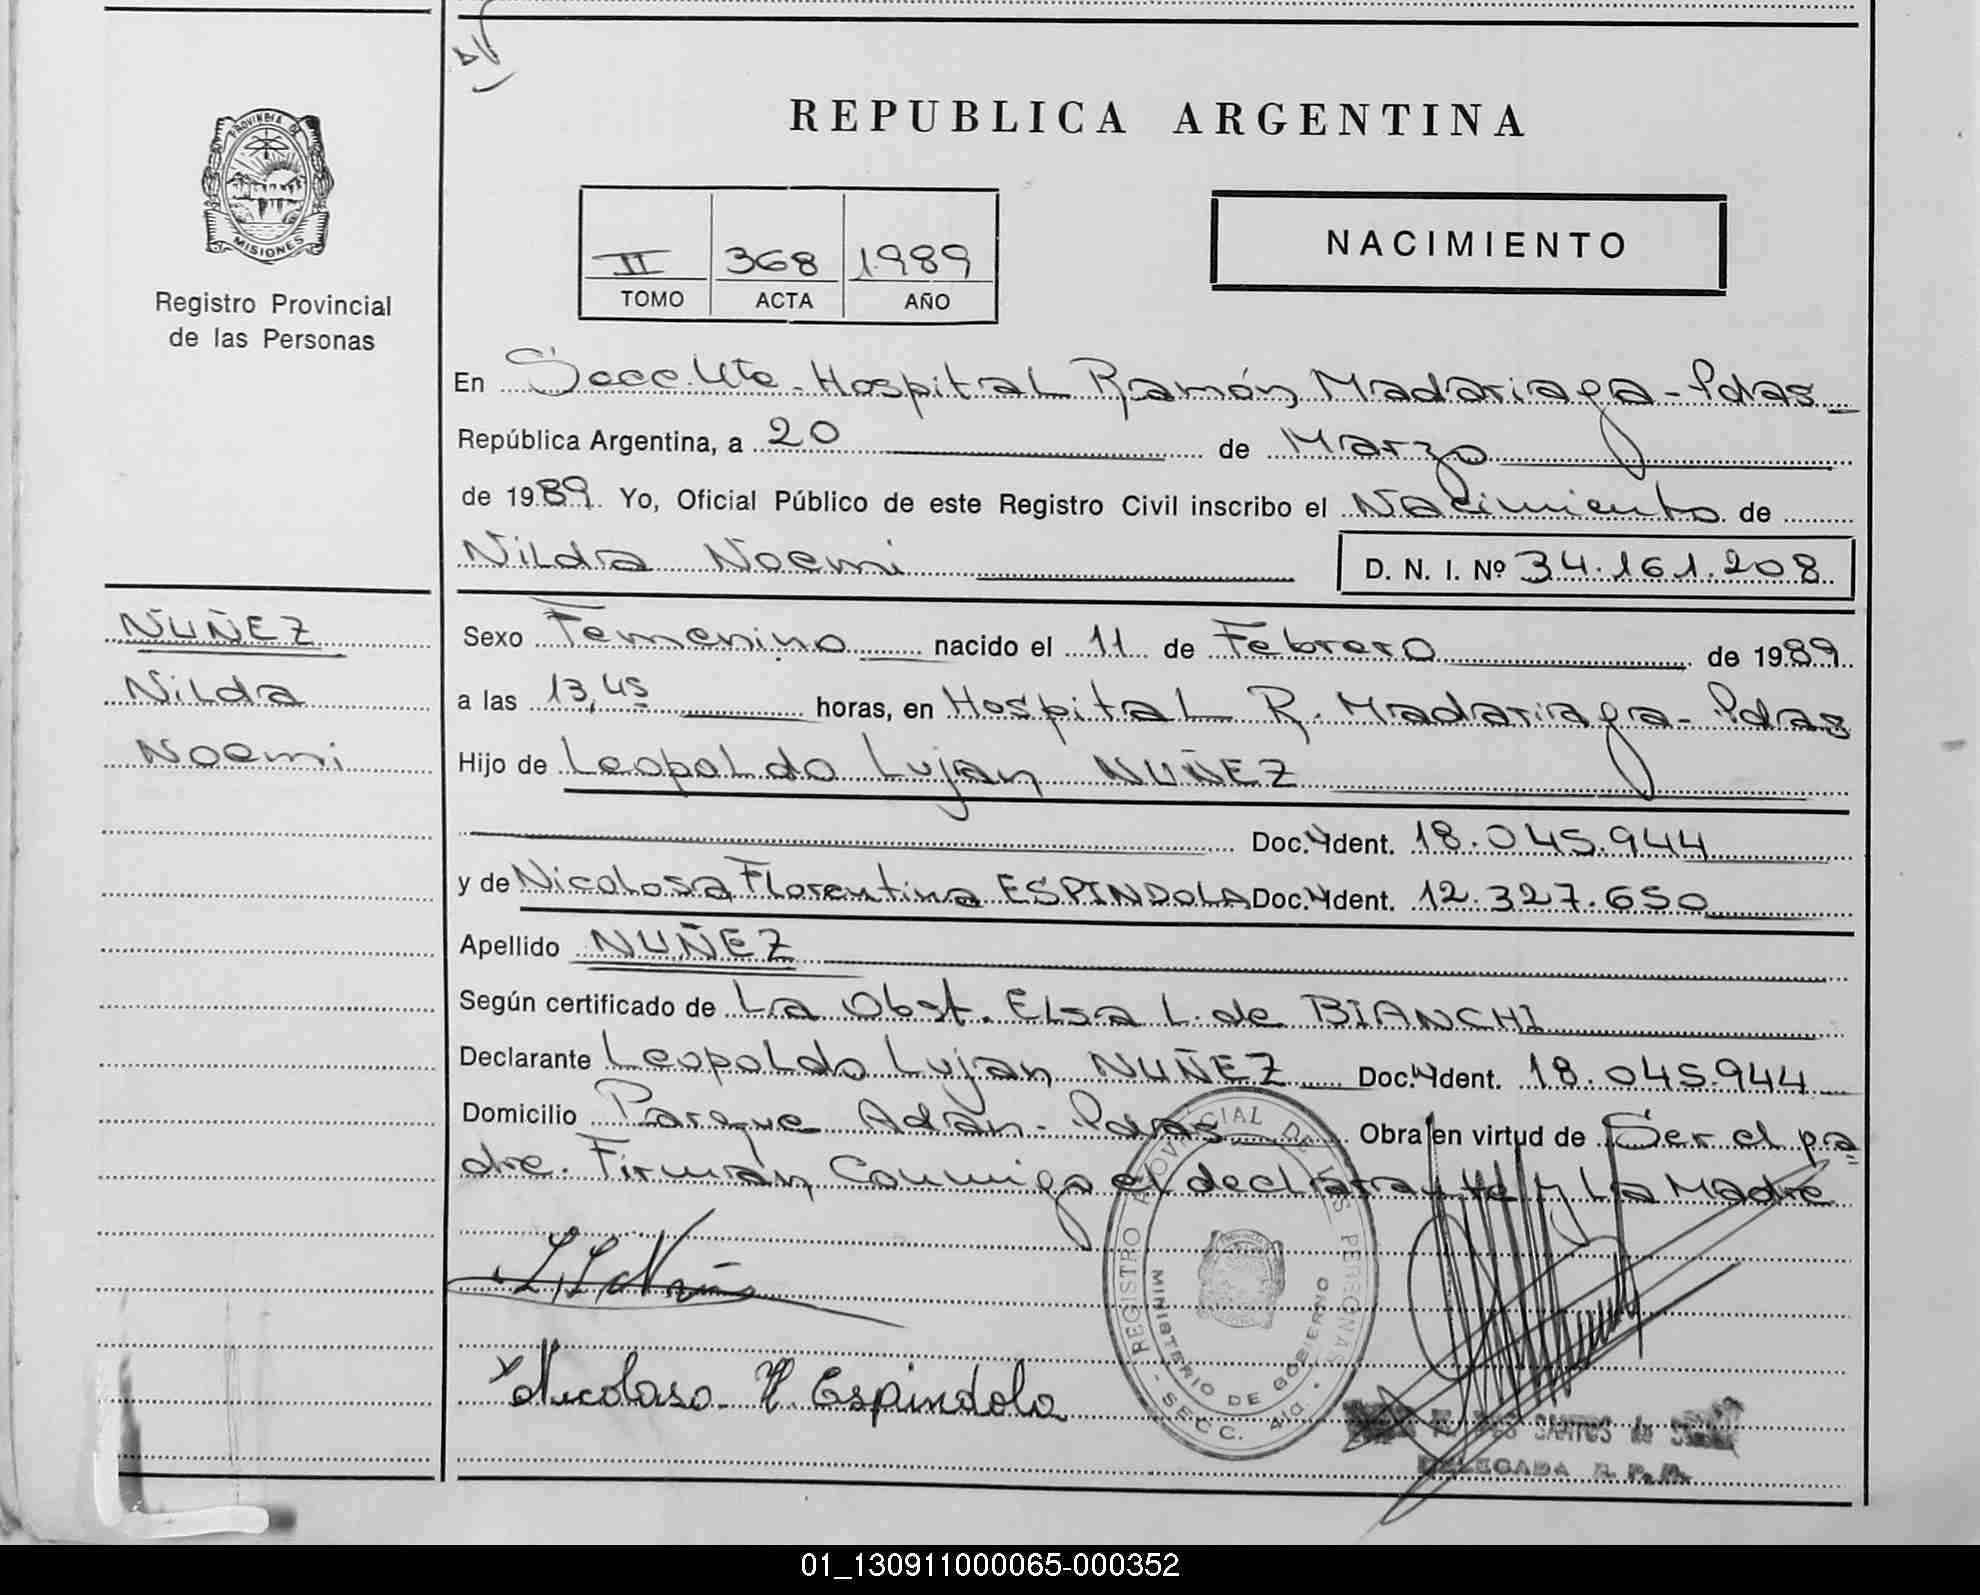 REPUBLICA ARGENTINA
PROVINCIA DE
MISIONES
Registro Provincial
de las Personas
II 368 1989
TOMO ACTA AÑO
NACIMIENTO
En Secc. 4ta - Hospital Ramón Madariaga - Pdas -
República Argentina, a 20 de Marzo
de 1989. Yo, Oficial Público de este Registro Civil inscribo el Nacimiento de
Nilda Noemi D. N. I. Nº 34.161.208
NUÑEZ
Nilda
Noemi
Sexo Femenino nacido el 11 de Febrero de 1989
a las 13,45 horas, en Hospital R. Madariaga - Pdas
Hijo de Leopoldo Lujan NUÑEZ
Doc. Ydent. 18.045.944
y de Nicolosa Florentina ESPINDOLA Doc. Ydent. 12.327.650
Apellido NUÑEZ
Según certificado de La Obst. Elsa L. de BIANCHI
Declarante Leopoldo Lujan NUÑEZ Doc. Ydent. 18.045.944
Domicilio Parque Adan - Pdas Obra en virtud de Ser el pa
dre. Firman Conmigo el declarante y La Madre
REGISTRO PROVINCIAL DE LAS PERSONAS
MINISTERIO DE GOBIERNO
- SECC. 4ta. -
Espindola
SANTOS de
DELEGADA R. P. P.
01_130911000065-000352